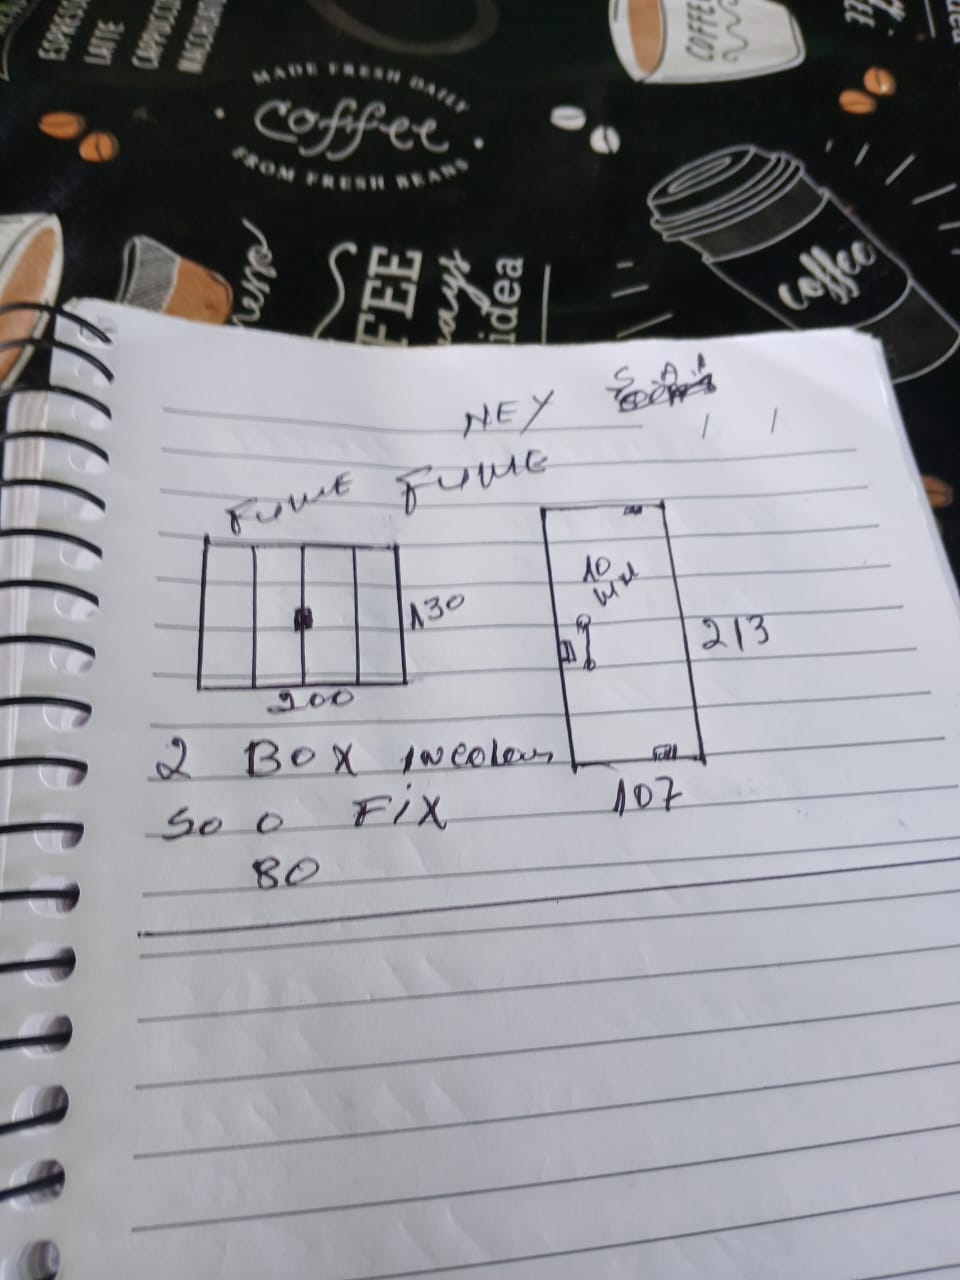 ESPRESSO
LATTE
CAPPUCCINO
MACCHIATO
MADE FRESH DAILY
coffee
FROM FRESH BEANS
COFFEE
coffee
FEE
ays
idea
NEY S.A.A
FUME FUME
10
MM
130
213
200
2 BOX incolor
107
SO O FIX
80